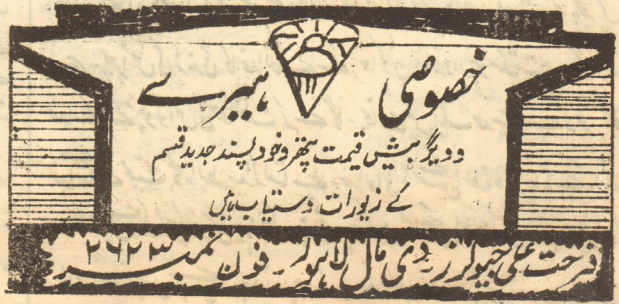 خصوصی ہیرے
و دیگر بیش قیمت پتھر و خود پسند جدید قسم
کے زیورات دستیاب ہیں
فرحت علی جیولرز - دی مال لاہور - فون نمبر ۲۶۲۳